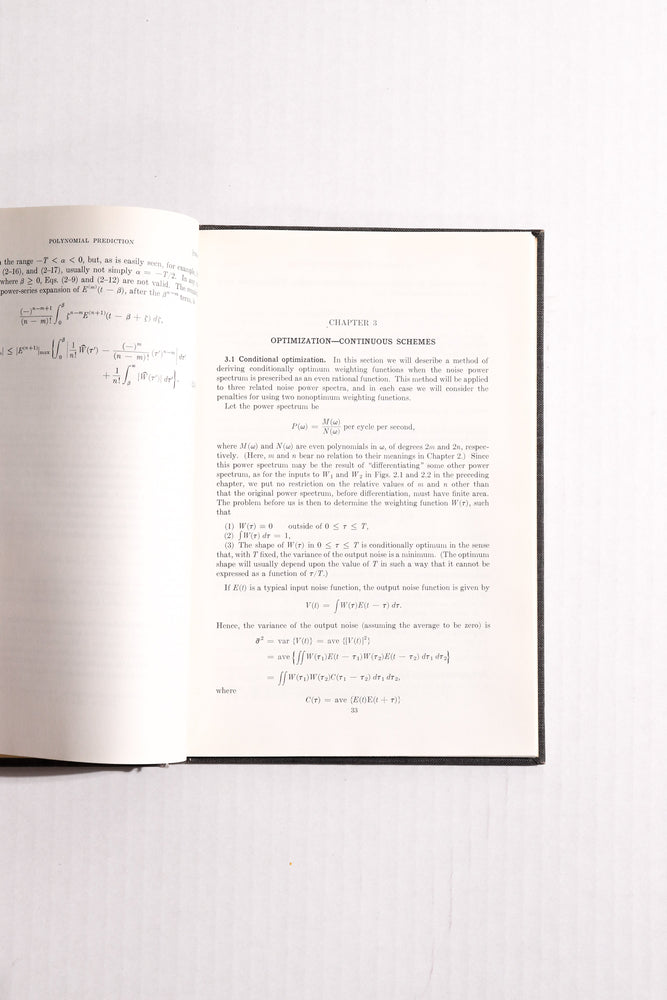 POLYNOMIAL PREDICTION
the range −T < α < 0, but, as is easily seen, for example,
(2–16), and (2–17), usually not simply α = −T/2. In
where β ≧ 0, Eqs. (2–9) and (2–12) are not valid. The
power-series expansion of E⁽ᵐ⁾(t − β), after the βⁿ⁻ᵐ term, is
(−)ⁿ⁻ᵐ⁺¹/(n − m)! ∫₀^β ζⁿ⁻ᵐE⁽ⁿ⁺¹⁾(t − β + ζ) dζ,
| ≤ |E⁽ⁿ⁺¹⁾|max {∫₀^β | 1/n! W̄(τ′) − (−)ᵐ/(n − m)! (τ′)ⁿ⁻ᵐ| dτ
+ 1/n! ∫_β^∞ |W̄(τ′)| dτ′},
CHAPTER 3
OPTIMIZATION—CONTINUOUS SCHEMES
3.1 Conditional optimization. In this section we will describe a method of
deriving conditionally optimum weighting functions when the noise power
spectrum is prescribed as an even rational function. This method will be applied
to three related noise power spectra, and in each case we will consider the
penalties for using two nonoptimum weighting functions.
Let the power spectrum be
P(ω) = M(ω)/N(ω) per cycle per second,
where M(ω) and N(ω) are even polynomials in ω, of degrees 2m and 2n, respec-
tively. (Here, m and n bear no relation to their meanings in Chapter 2.) Since
this power spectrum may be the result of “differentiating” some other power
spectrum, as for the inputs to W₁ and W₂ in Figs. 2.1 and 2.2 in the preceding
chapter, we put no restriction on the relative values of m and n other than
that the original power spectrum, before differentiation, must have finite area.
The problem before us is then to determine the weighting function W(τ), such
that
(1) W(τ) = 0 outside of 0 ≤ τ ≤ T,
(2) ∫W(τ) dτ = 1,
(3) The shape of W(τ) in 0 ≤ τ ≤ T is conditionally optimum in the sense
that, with T fixed, the variance of the output noise is a minimum. (The optimum
shape will usually depend upon the value of T in such a way that it cannot be
expressed as a function of τ/T.)
If E(t) is a typical input noise function, the output noise function is given by
V(t) = ∫W(τ)E(t − τ) dτ.
Hence, the variance of the output noise (assuming the average to be zero) is
σ̄² = var {V(t)} = ave {[V(t)]²}
= ave {∫∫W(τ₁)E(t − τ₁)W(τ₂)E(t − τ₂) dτ₁ dτ₂}
= ∫∫W(τ₁)W(τ₂)C(τ₁ − τ₂) dτ₁ dτ₂,
where
C(τ) = ave {E(t)E(t + τ)}
33